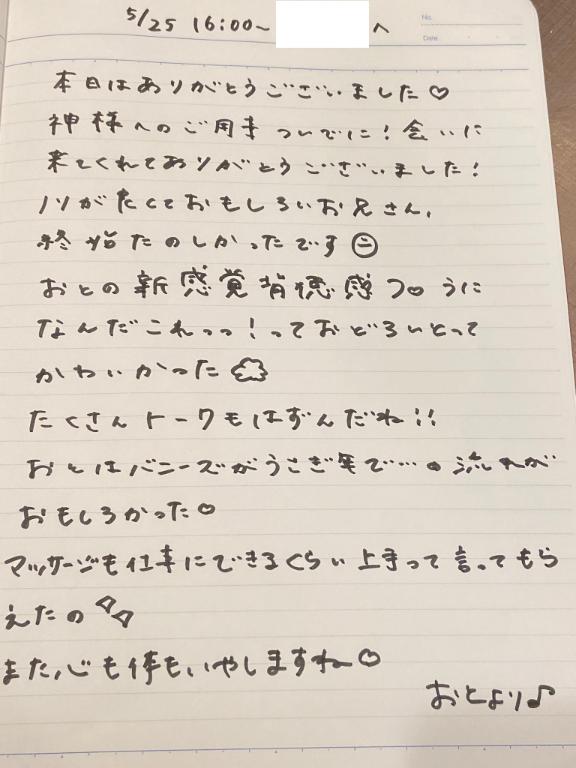 No.
Date
5/25 16:00~ へ
本日はありがとうございました♡
神様へのご用事ついでに！会いに
来てくれてありがとうございました！
ノリがたくておもしろいお兄さん、
終始たのしかったです
おとの新感覚背徳感フロうに
なんだこれっっ！っておどろいとって
かわいかった
たくさんトークもはずんだね！！
おとはバニーズがうさぎ年で…の流れが
おもしろかった♡
マッサージも仕事にできるくらい上手って言ってもら
えたの
また、心も体もいやしますね♡
おとより♪